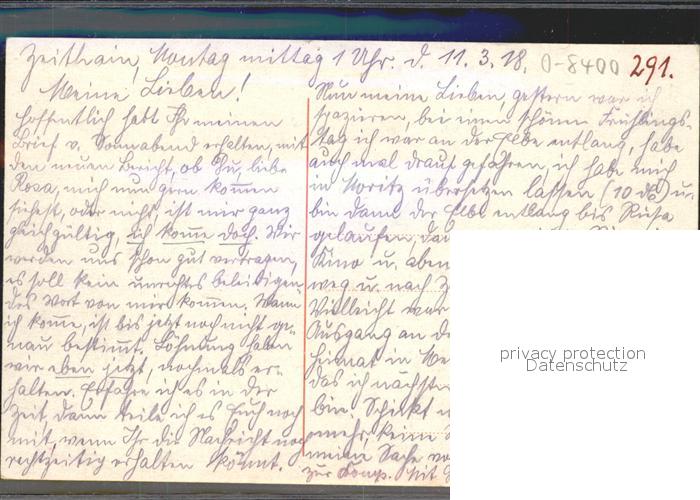 Zeithain, Montag mittag 1 Uhr. d. 11.3.18. 0-8400 291.
Meine Lieben!
Hoffentlich habt Ihr meinen
Brief v. Sonnabend erhalten, mit
den neuen Bericht, ob Du, liebe
Rosa, mich nun gern kom̄en
siehest, oder nicht, ist mir ganz
gleichgültig, ich kom̄e doch. Wir
werden uns schon gut vertragen,
es soll kein unrechtes beleidigen-
des Wort von mir kom̄en. Wann
ich kom̄e, ist bis jetzt noch nicht ge-
nau bestim̄t. Löhnung haben
wir eben jetzt, nochmals er-
halten. Erfahre ich es in der
Zeit, dann teile ich es Euch noch
mit, wenn Ihr die Nachricht noch
rechtzeitig erhalten könnt.
Nun meine Lieben, gestern war ich
spazieren, bei einen schönen Frühlings-
tag ich war an der Elbe entlang, habe
auch mal drauf gefahren, ich habe mich
in Moritz übersetzen lassen (10 ) u.
bin dann der Elbe entlang bis Riesa
gelaufen,
Kino u. aben
weg u. nach Z
Vielleicht war
Ausgang an de
Heimat in We
das ich nächste
bin. Schickt
mehr, keine
meine Sache vo
zur Komp. Mit
privacy protection
Datenschutz